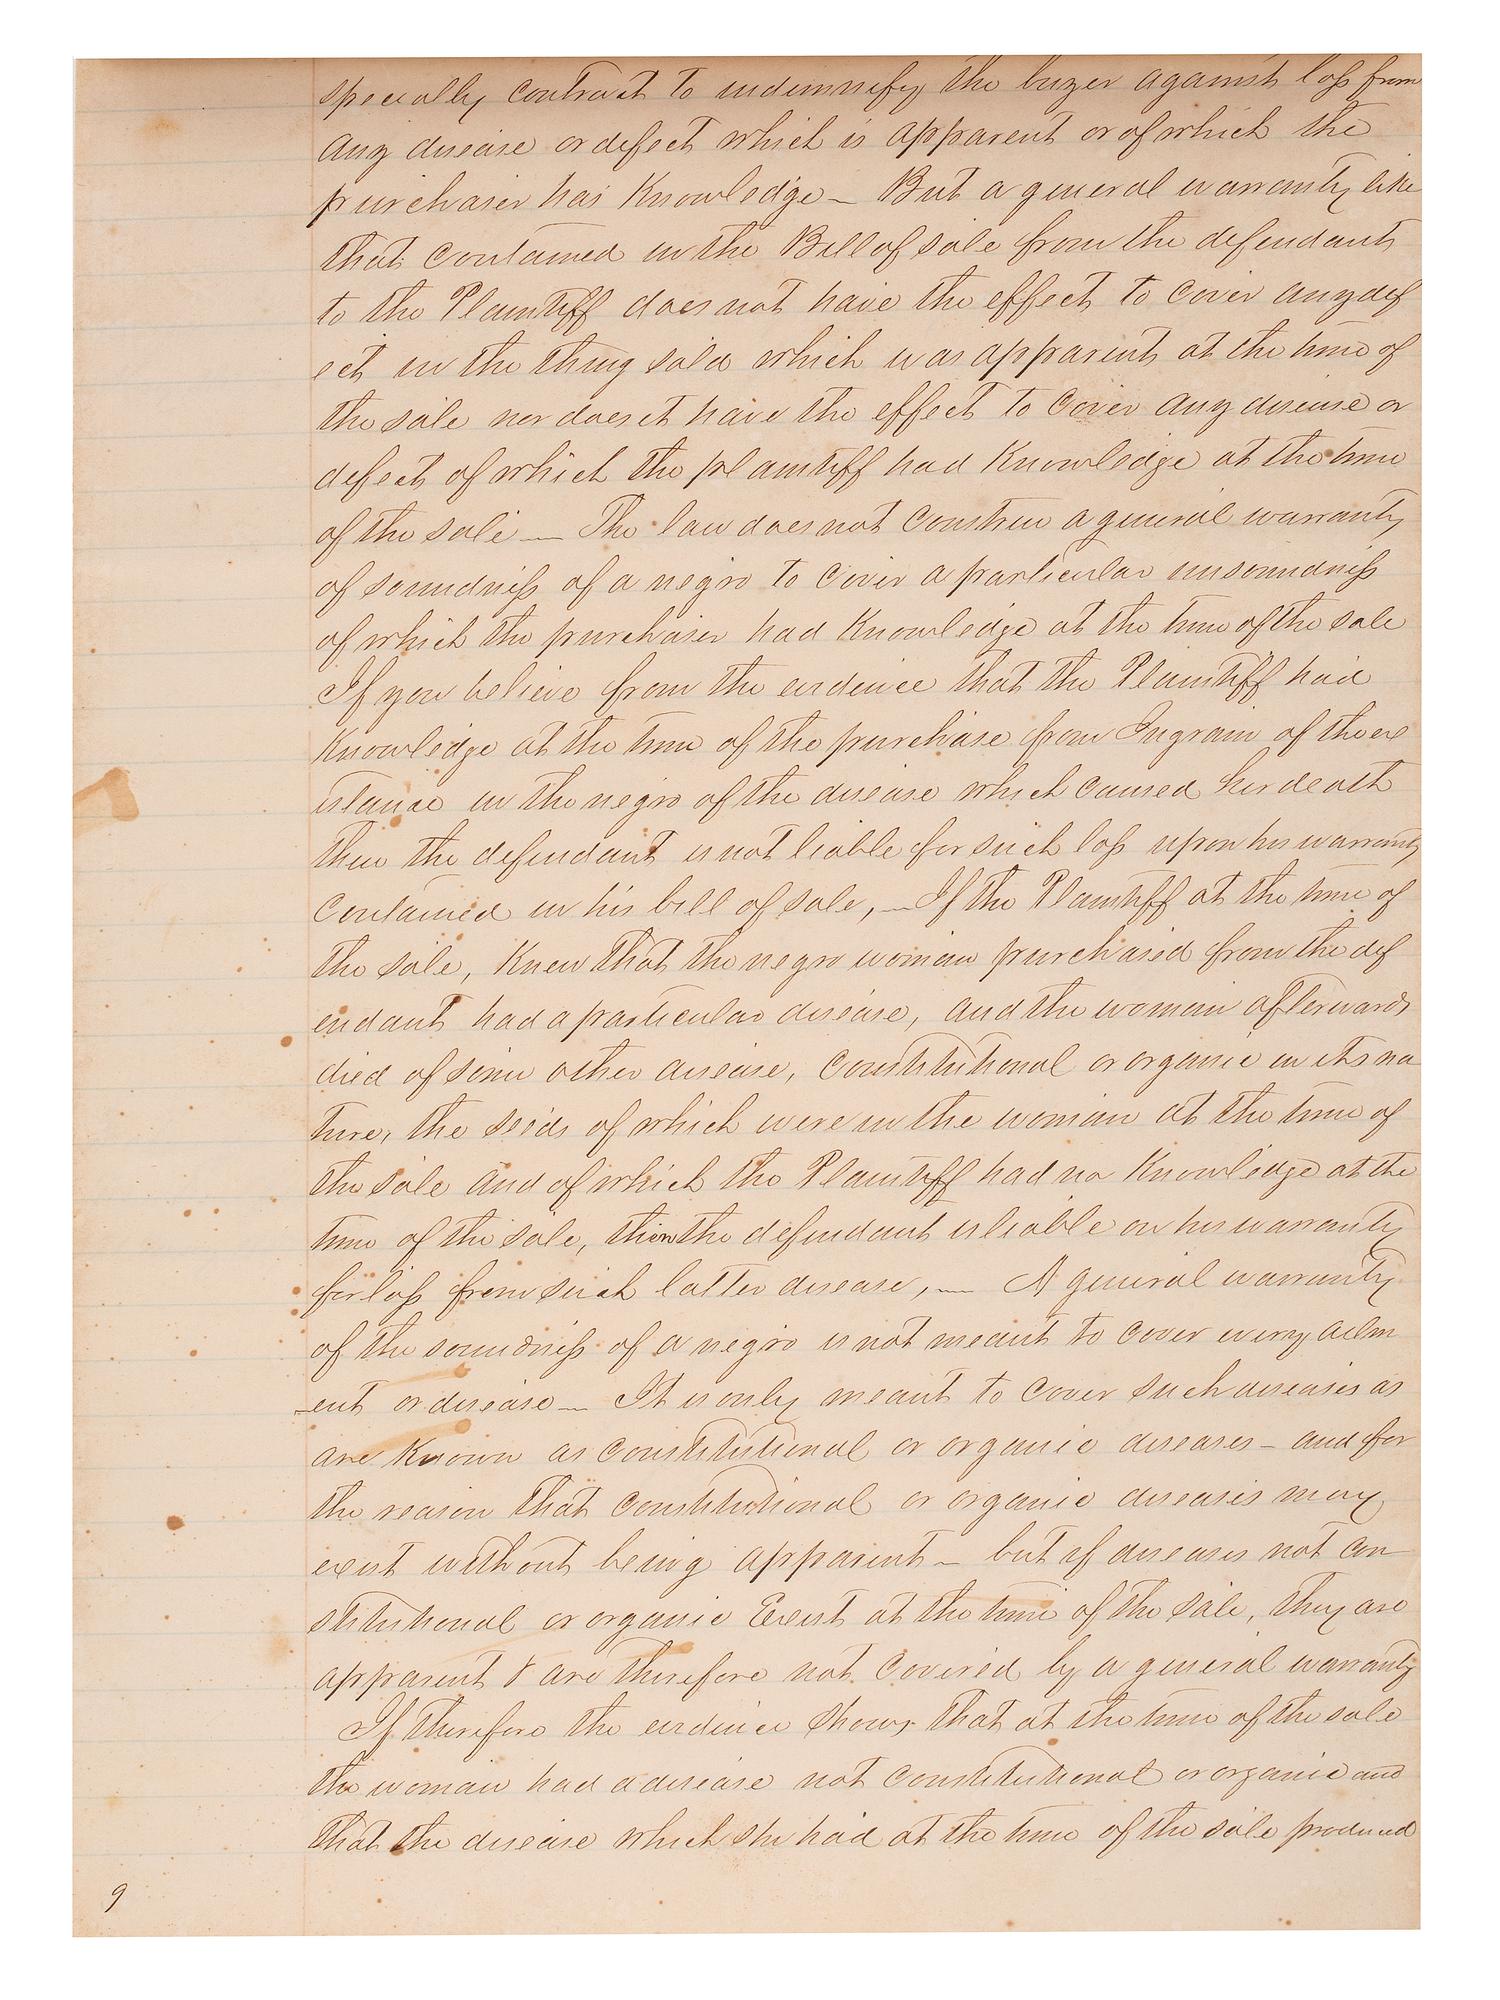 specially contract to indemnify the buyer against loss from
any disease or defect which is apparent or of which the
purchaser has Knowledge — But a general warranty like
that contained in the Bill of sale from the defendant
to the Plaintiff does not have the effect to cover any def
ect in the thing sold which was apparent at the time of
the sale nor does it have the effect to cover any disease or
defect of which the plaintiff had Knowledge at the time
of the sale — The law does not construe a general warranty
of soundness of a negro to cover a particular unsoundness
of which the purchaser had Knowledge at the time of the sale
If you believe from the evidence that the Plaintiff had
Knowledge at the time of the purchase from Ingram of the ex
istance in the negro of the disease which caused her death
then the defendant is not liable for such loss upon his warranty
contained in his bill of sale, — If the Plaintiff at the time of
the sale, Knew that the negro woman purchased from the def
endant had a particular disease, and the woman afterwards
died of some other disease, constitutional or organic in its na
ture, the seeds of which were in the woman at the time of
the sale and of which the Plaintiff had no Knowledge at the
time of the sale, then the defendant is liable on his warranty
for loss from such latter disease, — A general warranty
of the soundness of a negro is not meant to cover every ailm
ent or disease — It is only meant to cover such diseases as
are Known as constitutional or organic diseases — and for
the reason that constitutional or organic diseases may
exist without being apparent — but if diseases not con
stitutional or organic Exist at the time of the sale, they are
apparent & are therefore not covered by a general warranty
If therefore the evidence shows that at the time of the sale
the woman had a disease not constitutional or organic and
that the disease which she had at the time of the sale produced
9